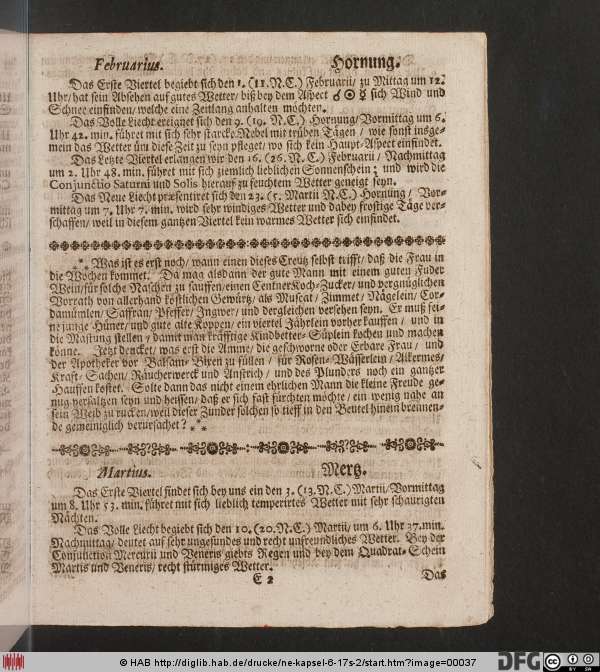 Februarius. Hornung.
Das Erste Viertel begiebt sich den 1. (11. N.C.) Februarii/ zu Mittag um 12.
Uhr/ hat sein Absehen auf gutes Wetter/ biß bey dem Aspect ☌ ☉ ☿ sich Wind und
Schnee einfinden/ welche eine Zeitlang anhalten möchten.
Das Volle Liecht ereignet sich den 9. (19. N.C.) Hornung/ Vormittag um 6.
Uhr 42. min. führet mit sich sehr starcke Nebel mit trüben Tägen/ wie sonst insge-
mein das Wetter üm diese Zeit zu seyn pfleget/ wo sich kein Haupt-Aspect einfindet.
Das Letzte Viertel erlangen wir den 16. (26. N.C.) Februarii/ Nachmittag
um 2. Uhr 48. min. führet mit sich ziemlich lieblichen Sonnenschein; und wird die
Conjunctio Saturni und Solis hierauf zu feuchtem Wetter geneigt seyn.
Das Neue Liecht præsentiret sich den 23. (5. Martii N.C.) Hornung/ Vor-
mittag um 7. Uhr 7. min. wird sehr windiges Wetter und dabey frostige Täge ver-
schaffen/ weil in diesem gantzen Viertel kein warmes Wetter sich einfindet.
*** Was ist es erst noch/ wann einen dieses Creutz selbst trifft/ daß die Frau in
die Wochen kommet. Da mag alsdann der gute Mann mit einem guten Fuder
Wein/ für solche Naschen zu sauffen/ einen Centner Koch-Zucker/ und vergnüglichen
Vorrath von allerhand köstlichen Gewürtz/ als Muscat/ Zimmet/ Nägelein/ Cor-
damümlen/ Saffran/ Pfeffer/ Ingwer/ und dergleichen versehen seyn. Er muß sei-
ne junge Hüner/ und gute alte Koppen/ ein viertel Jährlein vorher kauffen/ und in
die Mastung stellen/ damit man kräfftige Kindbetter-Süplein kochen und machen
könne. Jetzt dencket/ was erst die Amme/ die geschworne oder Erbare Frau/ und
der Apothecker vor Balsam-Bixen zu füllen/ für Rosen-Wässerlein/ Alkermes/
Kraft-Sachen/ Räucherwerck und Anstrich/ und des Plunders noch ein gantzer
Hauffen kostet. Solte dann das nicht einem ehrlichen Mann die kleine Freude ge-
nug versaltzen seyn und heissen/ daß er sich fast fürchten möchte/ ein wenig nahe an
sein Weib zu rucken/ weil dieser Zunder solchen so tieff in den Beutel hinein brennen-
de gemeiniglich verursachet? ***
Martius. Mertz.
Das Erste Viertel findet sich bey uns ein den 3. (13. N.C.) Martii/ Vormittag
um 8. Uhr 53. min. führet mit sich lieblich temperirtes Wetter mit sehr schaurigten
Nächten.
Das Volle Liecht begiebt sich den 10. (20. N.C.) Martii/ um 6. Uhr 37. min.
Nachmittag/ deutet auf sehr ungesundes und recht unfreundliches Wetter. Bey der
Conjunction Mercurii und Veneris giebts Regen und bey dem Quadrat-Schein
Martis und Veneris/ recht stürmiges Wetter.
E 2 Das
© HAB http://diglib.hab.de/drucke/ne-kapsel-6-17s-2/start.htm?image=00037
DFG
CC BY SA